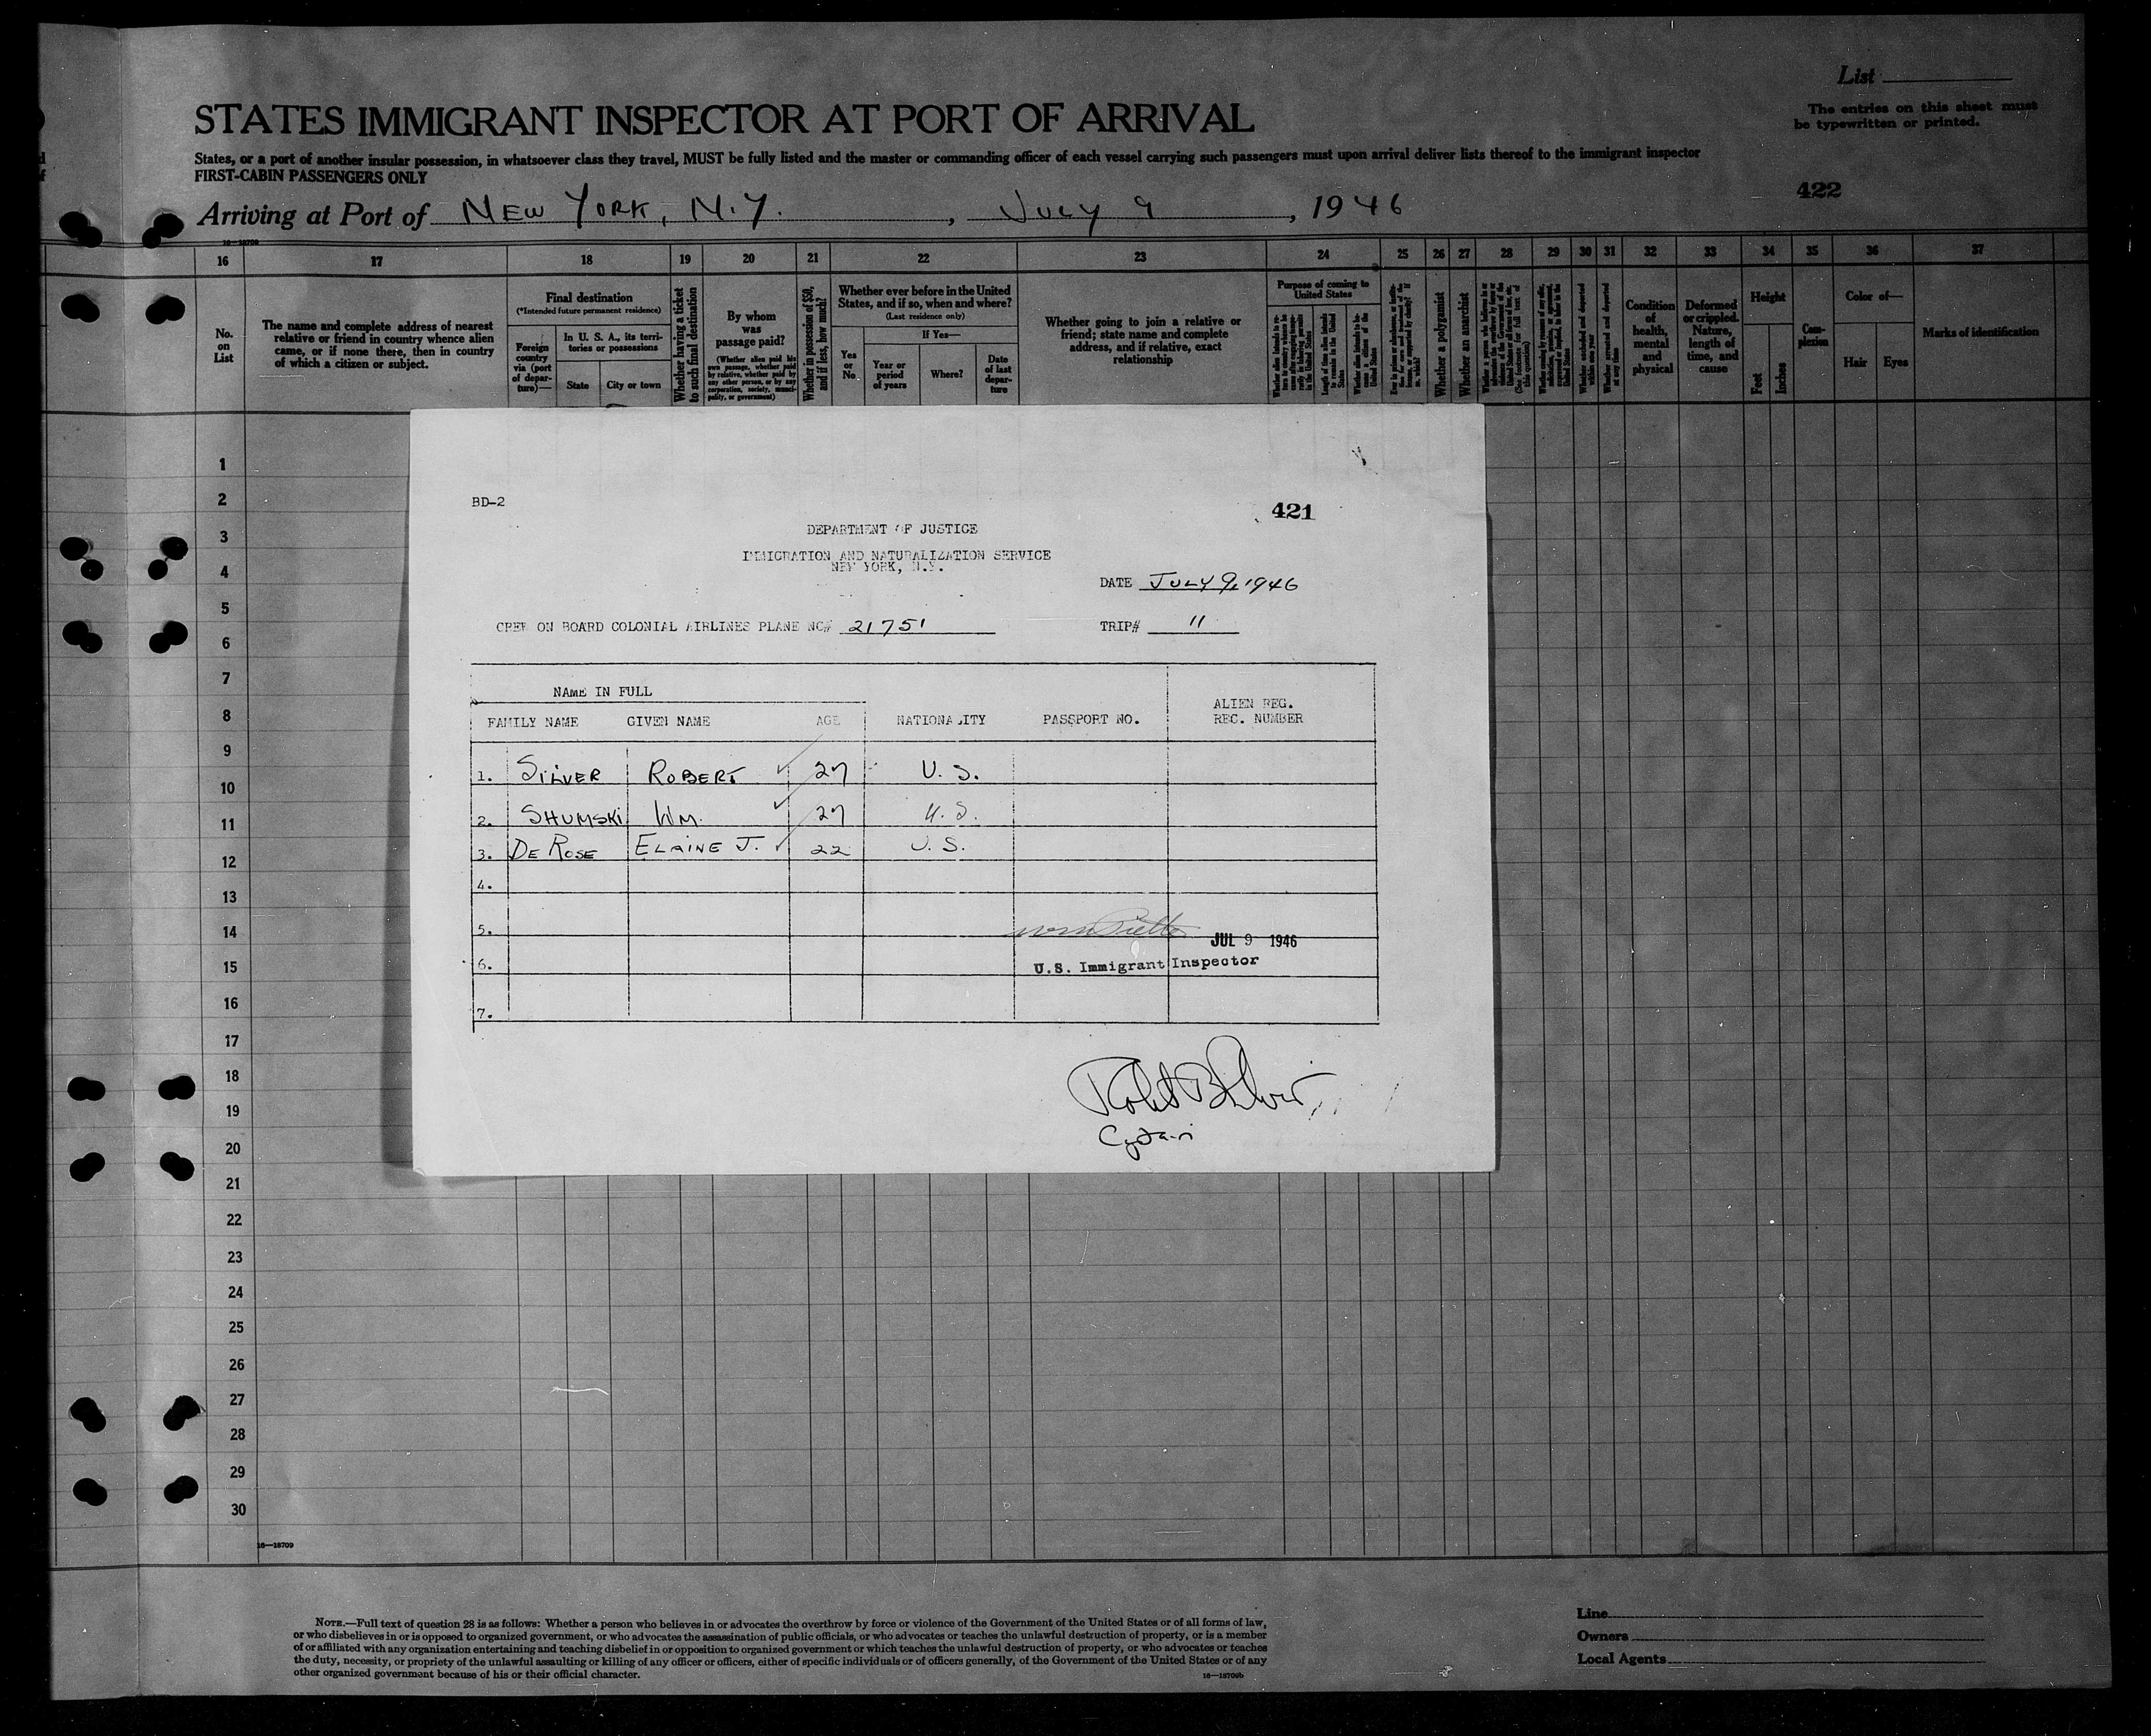 List
The entries on this sheet must
be typewritten or printed.
STATES IMMIGRANT INSPECTOR AT PORT OF ARRIVAL
States, or a port of another insular possession, in whatsoever class they travel, MUST be fully listed and the master or commanding officer of each vessel carrying such passengers must upon arrival deliver lists thereof to the immigrant inspector
FIRST-CABIN PASSENGERS ONLY
422
Arriving at Port of NEW YORK, N.Y. , JULY 9 , 1946
16—18709
16 17 18 19 20 21 22 23 24 25 26 27 28 29 30 31 32 33 34 35 36 37
No.
on
List
The name and complete address of nearest
relative or friend in country whence alien
came, or if none there, then in country
of which a citizen or subject.
Final destination
(*Intended future permanent residence)
Foreign
country
via (port
of depar-
ture)—
In U. S. A., its terri-
tories or possessions
State
City or town
Whether having a ticket
to such final destination
By whom
was
passage paid?
(Whether alien paid his
own passage, whether paid
by relative, whether paid by
any other person, or by any
corporation, society, munici-
pality, or government)
Whether in possession of $50,
and if less, how much?
Whether ever before in the United
States, and if so, when and where?
(Last residence only)
Yes
or
No
If Yes—
Year or
period
of years
Where?
Date
of last
depar-
ture
Whether going to join a relative or
friend; state name and complete
address, and if relative, exact
relationship
Purpose of coming to
United States
Length of time alien intends
to remain in the United
States
Whether a polygamist
Whether an anarchist
Condition
of
health,
mental
and
physical
Deformed
or crippled.
Nature,
length of
time, and
cause
Height
Feet
Inches
Com-
plexion
Color of—
Hair
Eyes
Marks of identification
1
2
3
4
5
6
7
8
9
10
11
12
13
14
15
16
17
18
19
20
21
22
23
24
25
26
27
28
29
30
BD-2
421
DEPARTMENT OF JUSTICE
IMMIGRATION AND NATURALIZATION SERVICE
NEW YORK, N.Y.
DATE JULY 9, 1946
CREW ON BOARD COLONIAL AIRLINES PLANE NO# 21751 TRIP# 11
NAME IN FULL
FAMILY NAME GIVEN NAME AGE NATIONALITY PASSPORT NO. ALIEN REG.
REC. NUMBER
1. SILVER ROBERT ✓ 27 U. S.
2. SHUMSKI WM. ✓ 27 U. S.
3. DE ROSE ELAINE J. ✓ 22 U. S.
4.
5.
JUL 9 1946
6. U.S. Immigrant Inspector
7.
Robert B Silver
Captain
16—18709
NOTE.—Full text of question 28 is as follows: Whether a person who believes in or advocates the overthrow by force or violence of the Government of the United States or of all forms of law,
or who disbelieves in or is opposed to organized government, or who advocates the assassination of public officials, or who advocates or teaches the unlawful destruction of property, or is a member
of or affiliated with any organization entertaining and teaching disbelief in or opposition to organized government or which teaches the unlawful destruction of property, or who advocates or teaches
the duty, necessity, or propriety of the unlawful assaulting or killing of any officer or officers, either of specific individuals or of officers generally, of the Government of the United States or of any
other organized government because of his or their official character.
16—18709b
Line
Owners
Local Agents